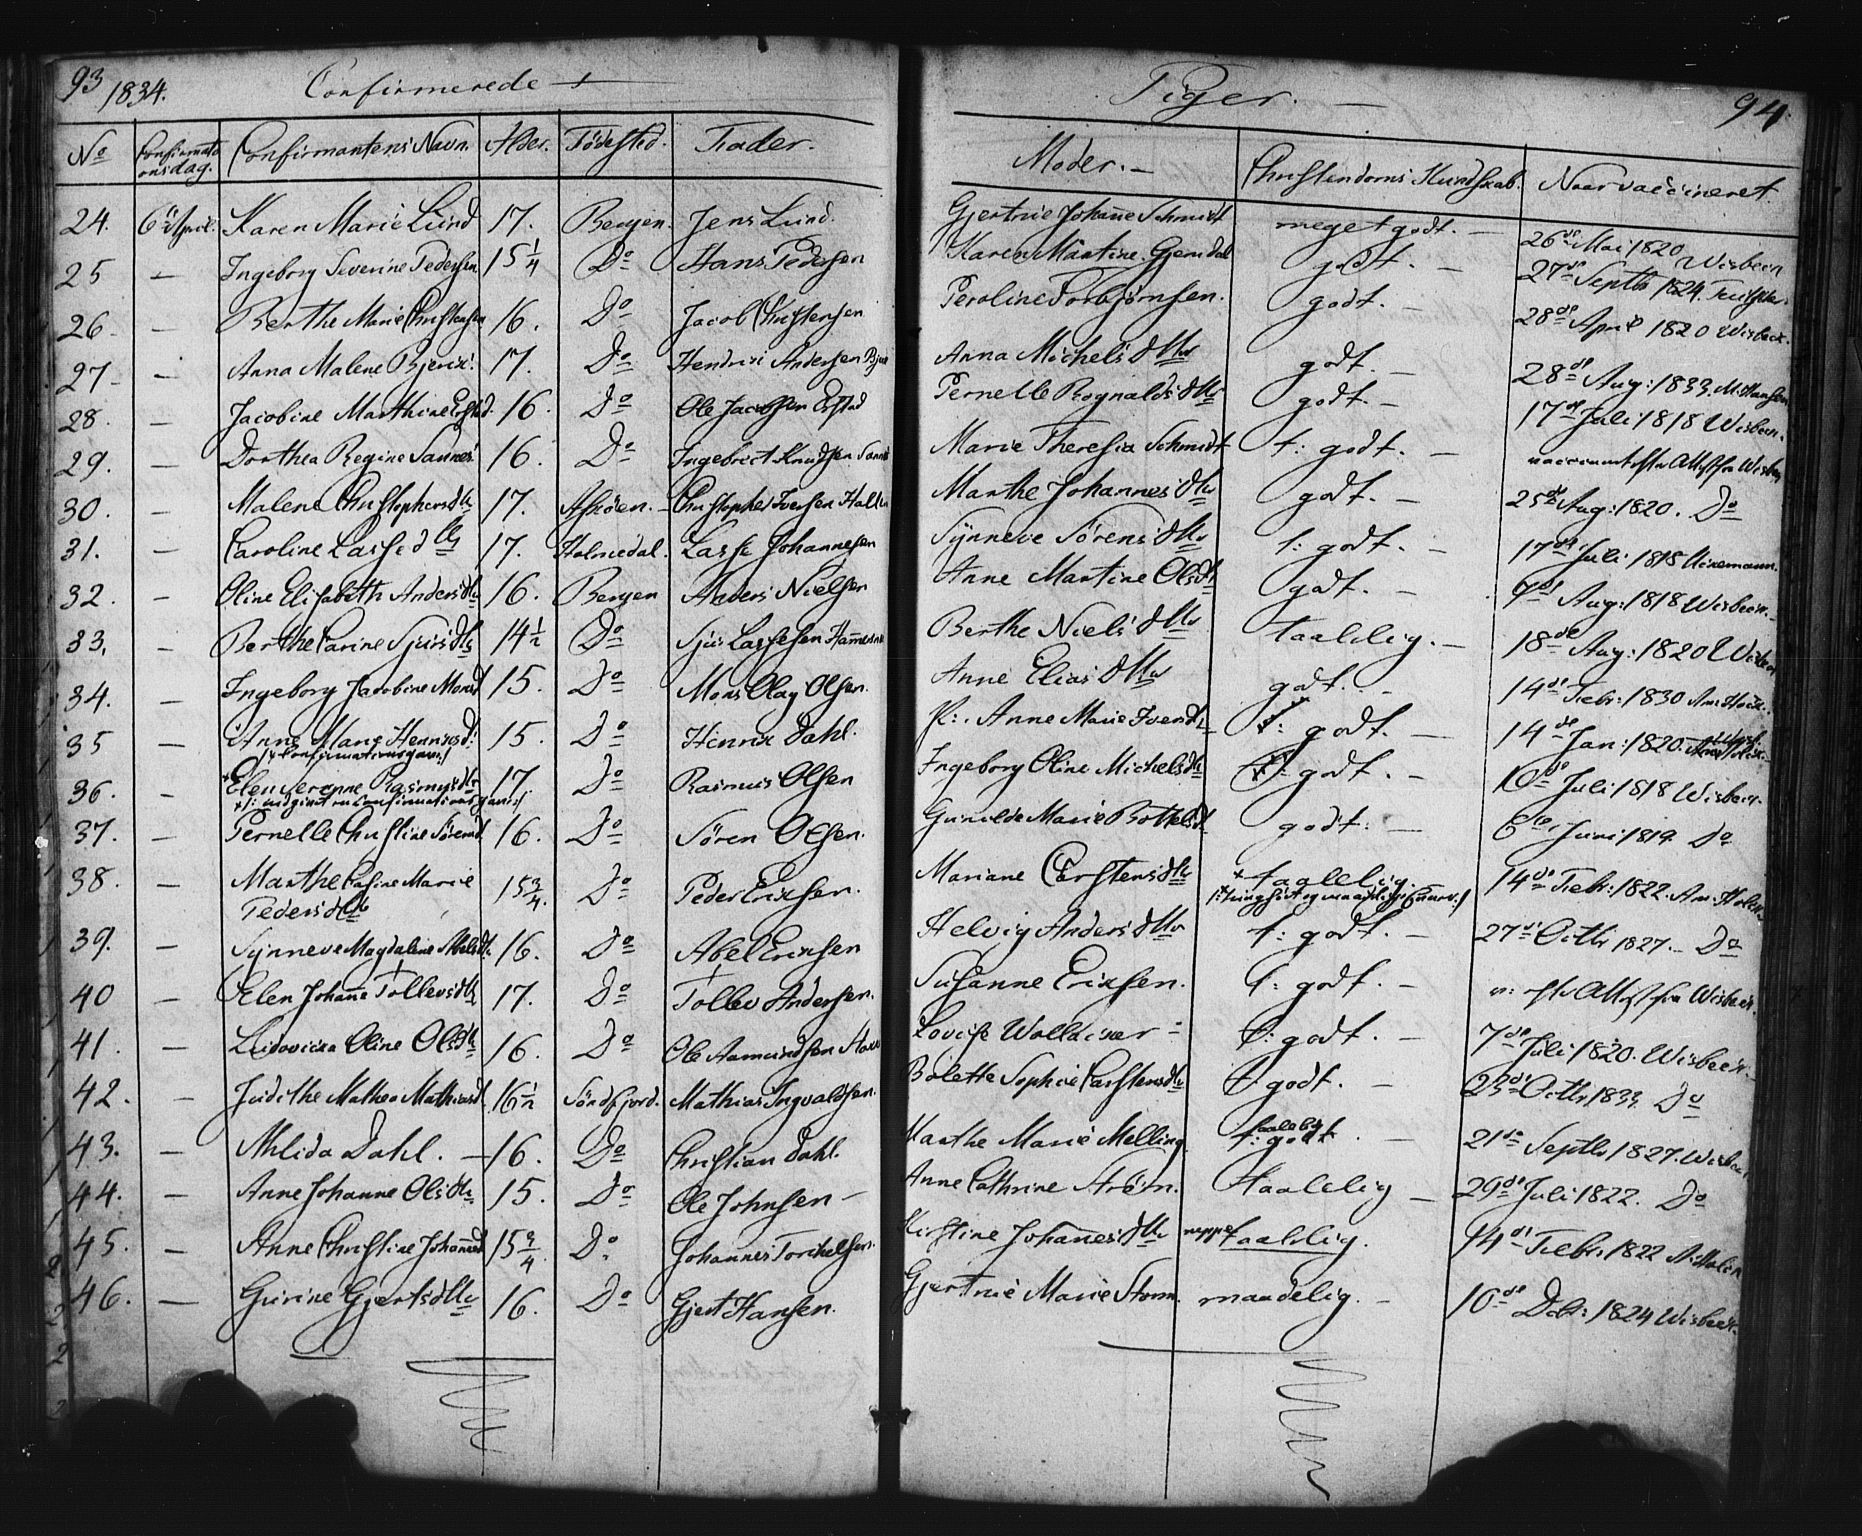 93 1834. Confirmerede Piger. 94
No Confirmationsdag. Confirmantens Navn. Alder. Födested. Fader. Moder. Christendoms Kundskab. Naar vaccineret.
24. 6te April. Karen Marie Lund 17. Bergen. Jens Lund. Gjertrue Johanne Schmidt meget godt. 26de Mai 1820 Wisbeen
25 — Ingeborg Severine Pedersen 15 1/4 Do Hans Pedersen Karen Martine Gjerndal godt. — 27de Septbr 1824.
26 — Berthe Marie Christensen 16. Do Jacob Christensen Peroline Torbjörnsen. godt. — 28de April 1820 Wisbeck.
27 — Anna Malene Bjerck 17. Do Hendrick Andersen Anna Michelsdtter godt. — 28de Aug: 1833
28. — Jacobine Marthine Erstad. 16. Do Ole Jacobsen Erstad Pernelle Rognaldsdtter godt. — 17de Juli 1818 Wisbeen.
29. — Dorthea Regine Sannes 16. Do Ingebrict Knudsen Marie Theresia Schmidt t: godt. — Attest fra
30. — Malene Christophersdtr 17. Askóen. Christopher Iversen Marthe Johannesdtr godt. — 25de Aug: 1820. Do
31. — Caroline Lassedtr 17. Holmedal. Lasse Johannesen Synneve Sørensdtr t: godt. — 17de Juli 1818
32. — Oline Elisabeth Andersdtr 16. Bergen Anders Nielsen Anne Martine Olsdt godt. — 7de Aug: 1818 Wisbeen.
33. — Berthe Carine Sjursdtr 14 1/2 Do Sjur Lassesen Berthe Nielsdtr taalelig. — 18de Aug: 1820
34. — Ingeborg Jacobine Monsd 15. Do Mons Olay Olsen. Anne Eliasdtr godt. — 14de Febr: 1830
35 — Anne Marie Henriksd: 15. Do Hinrik Dahl. Anne Marie Iversdt t: godt. — 14de Jan: 1820.
36. — Elen Serenne Rasmusdtr 17. Do Rasmus Olsen Ingeborg Oline Michelsdtr t: godt. — 10de Juli 1818 Wisbeen.
37. — Pernelle Christine Sörensd. 16. Do Sören Olsen. Gunilde Marie Bottelsdt godt: — 6te Juni 1819. Do
38. — Marthe Casine Marie
Pedersdtr 15 3/4. Do Peder Ericksen. Mariane Carstensdtr + taalelig. 14de Febr: 1822.
39. — Synneve Magdaline Abelsdt. 16. Do Abel Ericksen Helvig Andersdtr t: godt. — 27de Octbr 1827. — Do
40 — Elen Johanne Tollevsdtr 17. Do Tollev Andersen. Susanne Ericksen. t: godt. — Attest fra
41. — Ludovicka Oline Olsdtr 16. Do Ole Aamundsen Lovise Woldemar t: godt. — 7de Juli 1820. Wisbeck.
42. — Judithe Mathea Mathiasd. 16 1/2 Söndfjord. Mathias Ingvaldsen. Bolette Sophie Carstensdtr t: godt. — 23de Octbr 1833. Do
43. — Ahlida Dahl. — 16. Do Christian Dahl. Marthe Marie Melling taalelig — 21de Septbr 1827.
44. — Anne Johanne Olsdtr 15. Do Ole Johnsen — Anne Cathrine Ström. taalelig — 29de Juli 1822. Do
45. — Anne Christine Johannesd 15 3/4. Do Johannes Torckelsen. Kirstine Johannesdtr neppe taalelig. 14de Febr: 1822
46. — Gurine Gjertsdtr 16. Do Gjert Hansen. Gjertrue Marie Storm. maadelig. — 10de Dcbr: 1824 Wisbeck.